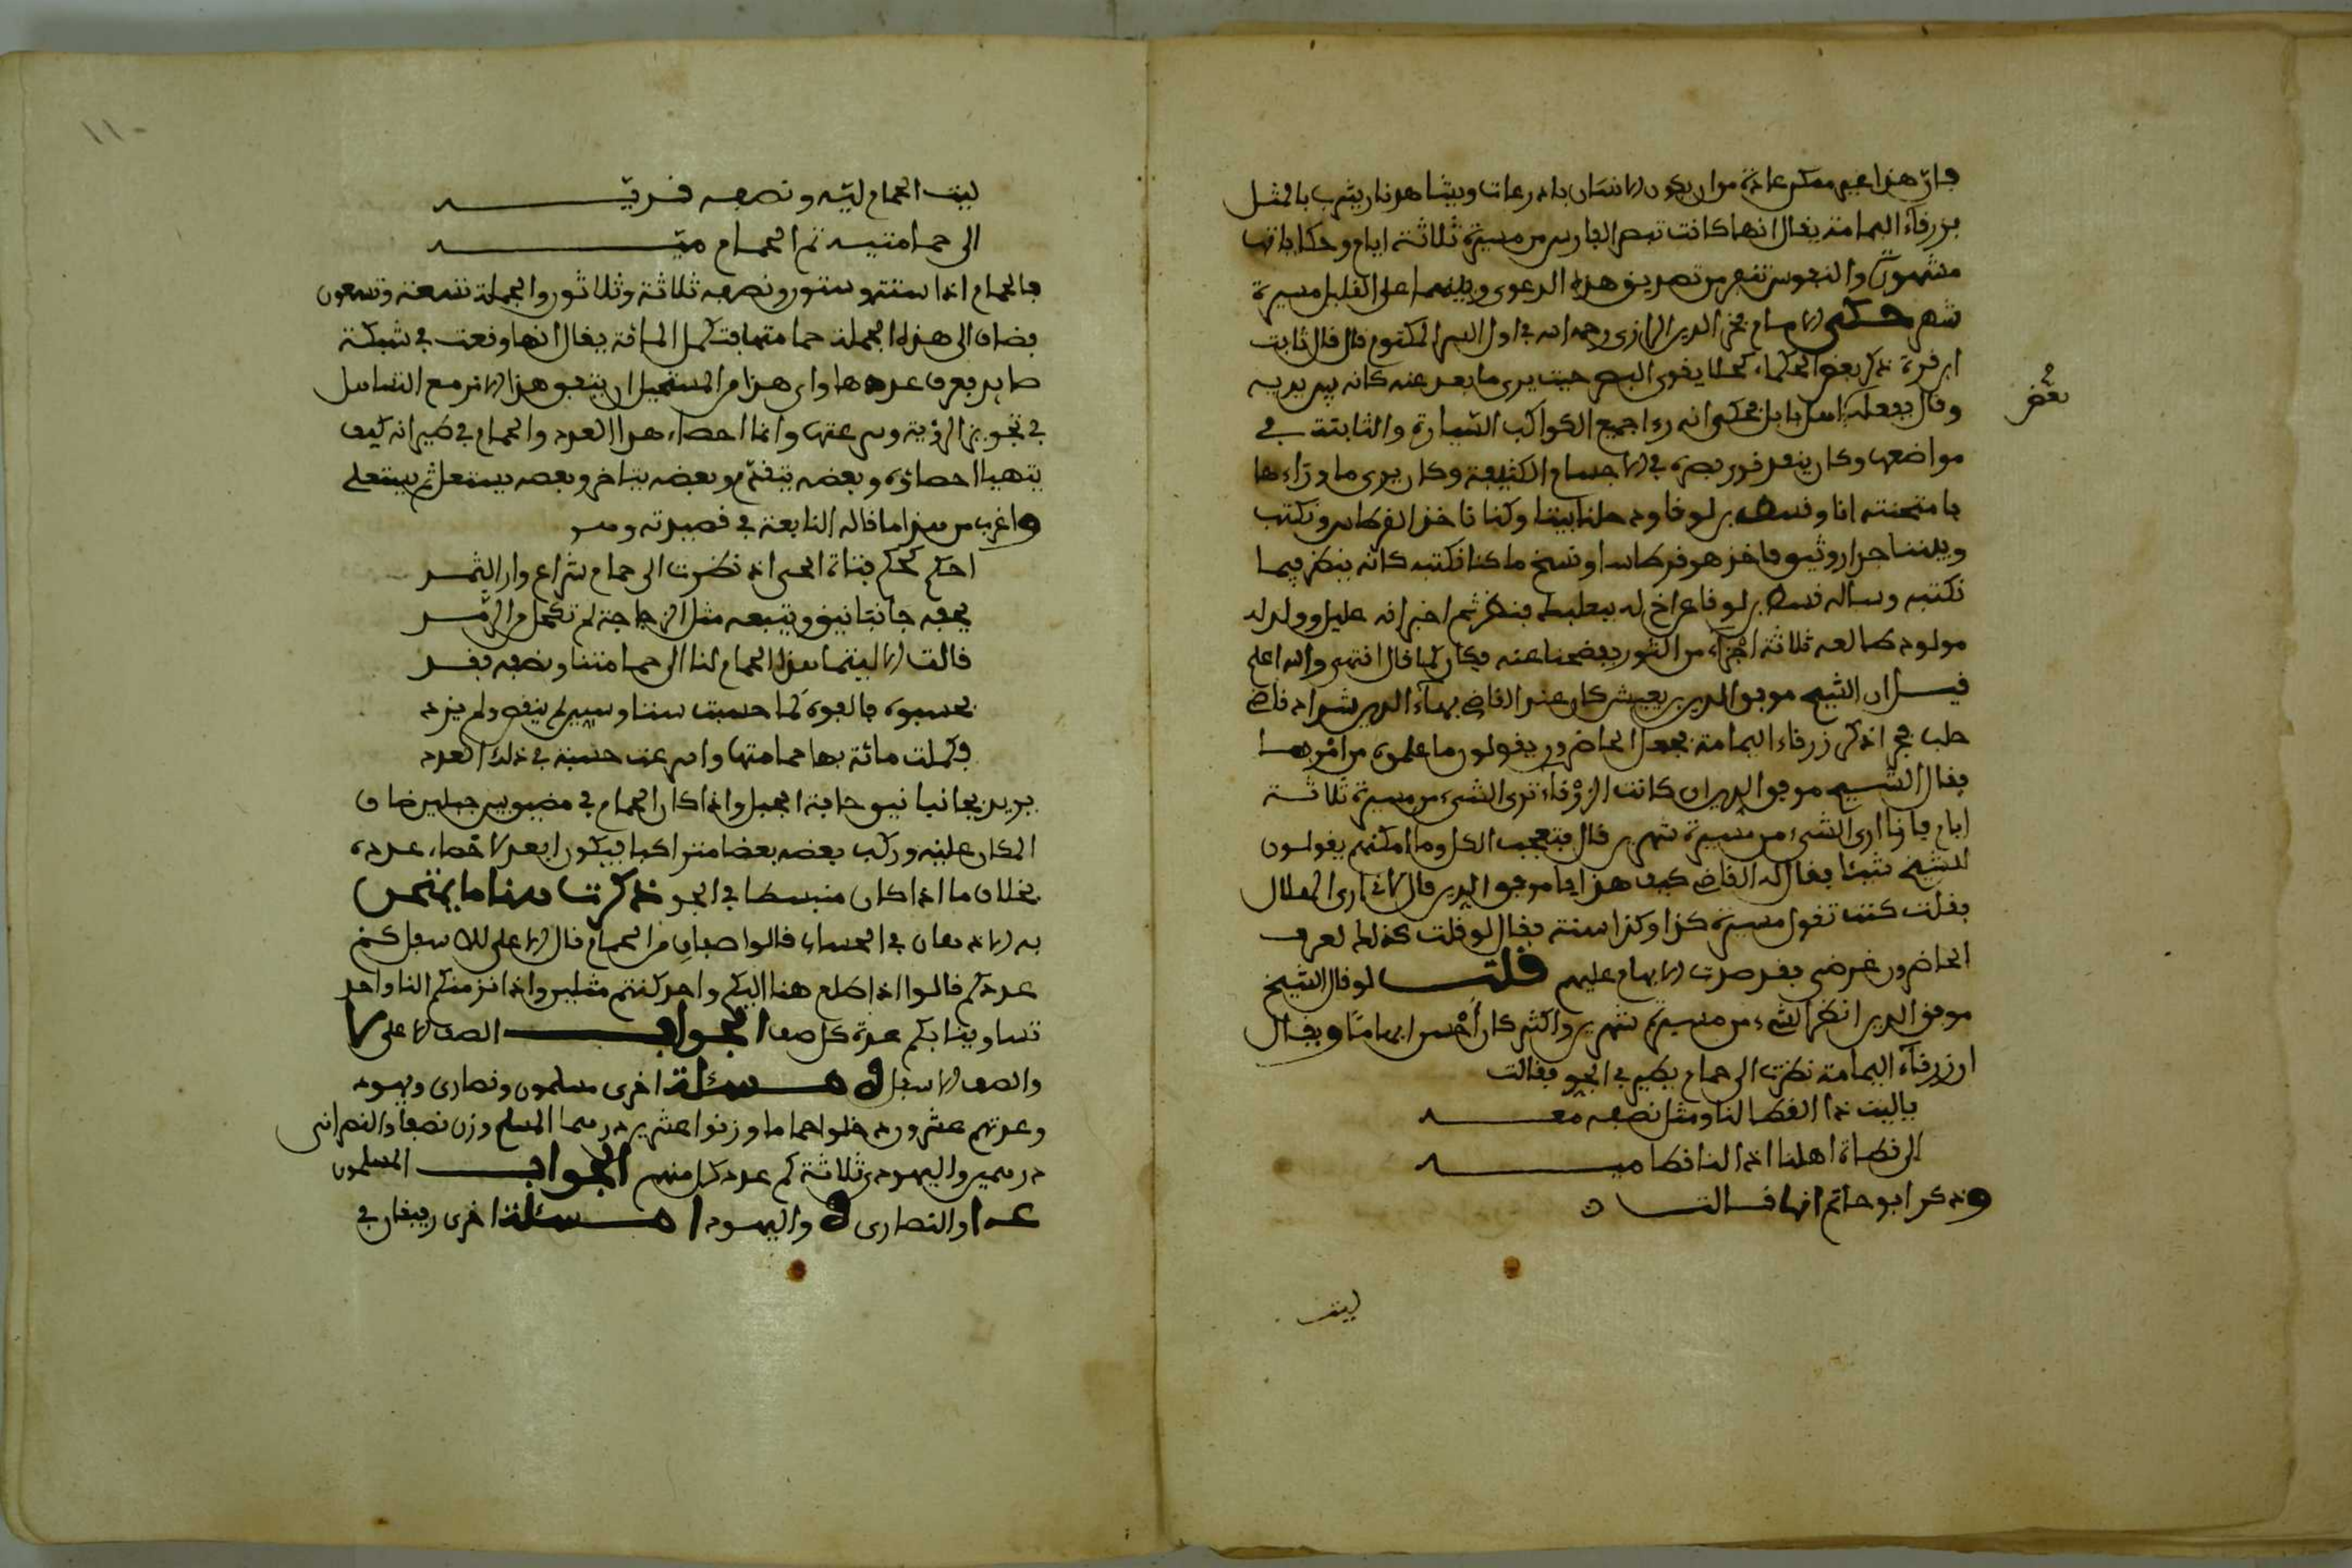 فان هذا غير ممكن عادة من ان يكون الانسان باذرعات ويشاهد نار يثرب بالمثل
بزرقاء اليمامة يقال انها كانت تبصر الفارس من مسيرة ثلاثة ايام وحكاياتها
مشهورة والنفوس تنفر من تصديق هذه الدعوى وبينهما على القليل مسيرة
شهر حكى الامام فخر الدين الرازي رحمه الله في اول السر المكتوم قال قال ثابت
ابن قرة ذكر بعض الحكماء كحلا يقوي البصر حيث يرى ما بعد عنه كانه بين يديه
بعض
وقال بفعله اهل بابل فحكى انه رءا جميع الكواكب السيارة والثابتة في
مواضعها وكان ينفذ نور بصره في الاجسام الكثيفة وكان يرى ما وراءها
فامتحنته انا وقسطا بن لوقا ودخلنا بيتا وكنا ناخذ القرطاس ونكتب
وبيننا جدار وثيق فاخذ هو قرطاسا ونسخ ما كنا نكتبه كانه ينظر فيما
نكتبه وساله قسطا بن لوقا عن اخ له ببعلبك فنظر ثم اخبر انه عليل وولد له
مولود طالعه ثلاثة اجزاء من الثور ففحصنا عنه فكان كما قال انتهى والله اعلم
قيل ان الشيخ موفق الدين بن يعيش كان عند القاضي بهاء الدين بن شداد قاضي
حلب فجرا ذكر زرقاء اليمامة فجعل الحاضرون يقولون ما علموه من امرها
فقال الشيخ موفق الدين ان كانت الزرقاء ترى الشيء من مسيرة ثلاثة
ايام فانا ارى الشيء من مسيرة شهرين قال فتعجب الكل وما امكنهم يقولون
للشيخ شيئا فقال له القاضي كيف هذا يا موفق الدين قال لاني ارى الهلال
فقلت كنت تقول مسيرة كذا وكذا سنة فقال لو قلت كذلك لعرف
الحاضرون غرضي فقصدت الابهام عليهم قلت لو قال الشيخ
موفق الدين انظر الشيء من مسيرة شهرين واكثر كان احسن ابهاما ويقال
ان زرقاء اليمامة نظرت الى حمام يطير في الجو فقالت
ياليت ذا القطا لنا ومثل نصفه معه
الى قطاة اهلنا اذا لنا قطا ميه
وذكر ابو حاتم انها قالت
ليت
١١٠
ليت الحمام ليه ونصفه قديه
الى حمامتيه تم الحمام ميه
فالحمام اذا ستة وستون ونصفه ثلاثة وثلاثون والجملة تسعة وتسعون
يضاف الى هذه الجملة حمامتها فتكمل المائة يقال انها وقعت في شبكة
صايد فعرف عددها وارى هذا من المستحيل ان يتفق هذا الامر مع التساهل
في تجويز الرؤية وسرعتها وانما احصاء هذا العدد والحمام في طيرانه كيف
يتهيا احصاؤه وبعضه يتقدم وبعضه يتاخر وبعضه يستفل ثم يستعلي
واغرب من هذا ما قاله النابغة في قصيدته وهو
احكم كحكم فتاة الحي اذ نظرت الى حمام شراع وارد الثمد
يحفه جانبا نيق وتتبعه مثل الزجاجة لم تكحل من الرمد
قالت الا ليتما هذا الحمام لنا الى حمامتنا ونصفه فقد
فحسبوه فالفوه كما حسبت ستا وستين لم ينقص ولم يزد
فكملت مائة بها حمامتها واسرعت حسبة في ذلك العدد
يريد بجانبا نيق حافة الجبل واذا كان الحمام في مضيق بين جبلين ضاق
المكان عليه وركب بعضه بعضا متراكبا فيكون ابعد لاحصاء عدده
بخلاف ما اذا كان منبسطا في الجو ذكرت هنا ما يمتحن
به الاذهان في الحساب قالوا صفان من الحمام قال الاعلى للاسفل كم
عددكم قالوا اذا طلع هنا اليكم واحد كنتم مثلين واذا نزل منكم الينا واحد
تساوينا بكم عدة كل صف الجواب الصف الاعلى ٧
والصف الاسفل ٥ مسئلة اخرى مسلمون ونصارى ويهود
وعدتهم عشرون دخلوا حماما وزنوا عشرين درهما المسلم وزن نصفا والنصراني
درهمين واليهودي ثلاثة كم عدد كل منهم الجواب المسلمون
عدا والنصارى ٥ واليهود ١ مسئلة اخرى رغيفان في